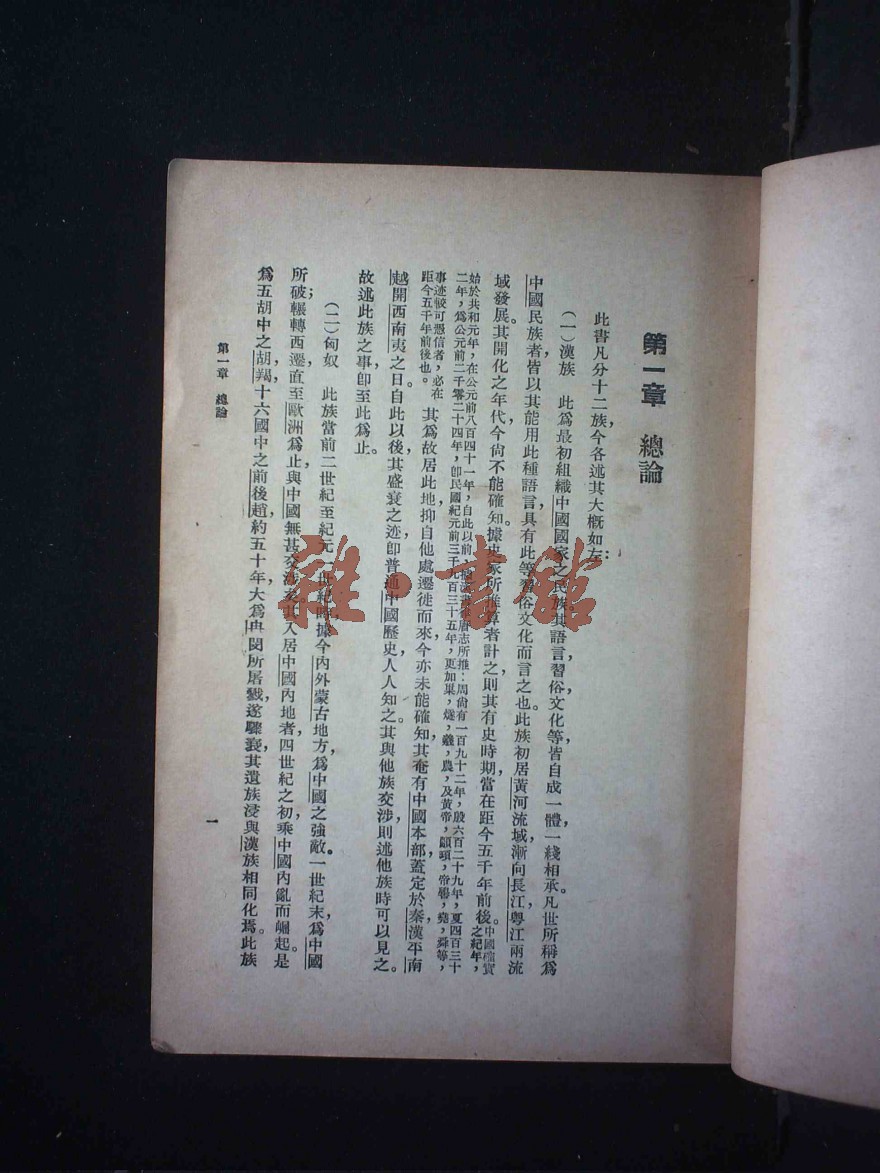 第一章 總論
此書凡分十二族，今各述其大概如左：
（一）漢族 此爲最初組織中國國家之民族。其語言習俗文化等，皆自成一體，一綫相承。凡世所稱爲
中國民族者，皆以其能用此種語言，具有此等習俗文化而言之也。此族初居黃河流域，漸向長江粵江兩流
域發展。其開化之年代，今尙不能確知。據史家所推算者計之，則其有史時期，當在距今五千年前後。中國確實之紀年，
始於共和元年，在公元前八百四十一年，自此以前，據漢書律曆志所推：周尙有一百九十二年，殷六百二十九年，夏四百三十
二年，爲公元前二千零二十四年，卽民國紀元前三千九百三十五年，更加巢，燧，羲，農，及黃帝，顓頊，帝嚳，堯，舜等，
事迹較可憑信者，必在距今五千年前後也。 其爲故居此地，抑自他處遷徙而來，今亦未能確知。其奄有中國本部，蓋定於秦漢平南
越開西南夷之日。自此以後，其盛衰之迹，卽普通中國歷史，人人知之。其與他族交涉，則述他族時可以見之。
故述此族之事，卽至此爲止。
（二）匈奴 此族當前二世紀至紀元一世紀時，據今內外蒙古地方，爲中國之強敵。一世紀末，爲中國
所破，輾轉西遷，直至歐洲爲止；與中國無甚交涉矣。其入居中國內地者，四世紀之初，乘中國內亂而崛起。是
爲五胡中之胡羯，十六國中之前後趙。約五十年，大爲冉閔所屠戮，遂驟衰，其遺族浸與漢族相同化焉。此族
第一章 總論
一
雜·書館